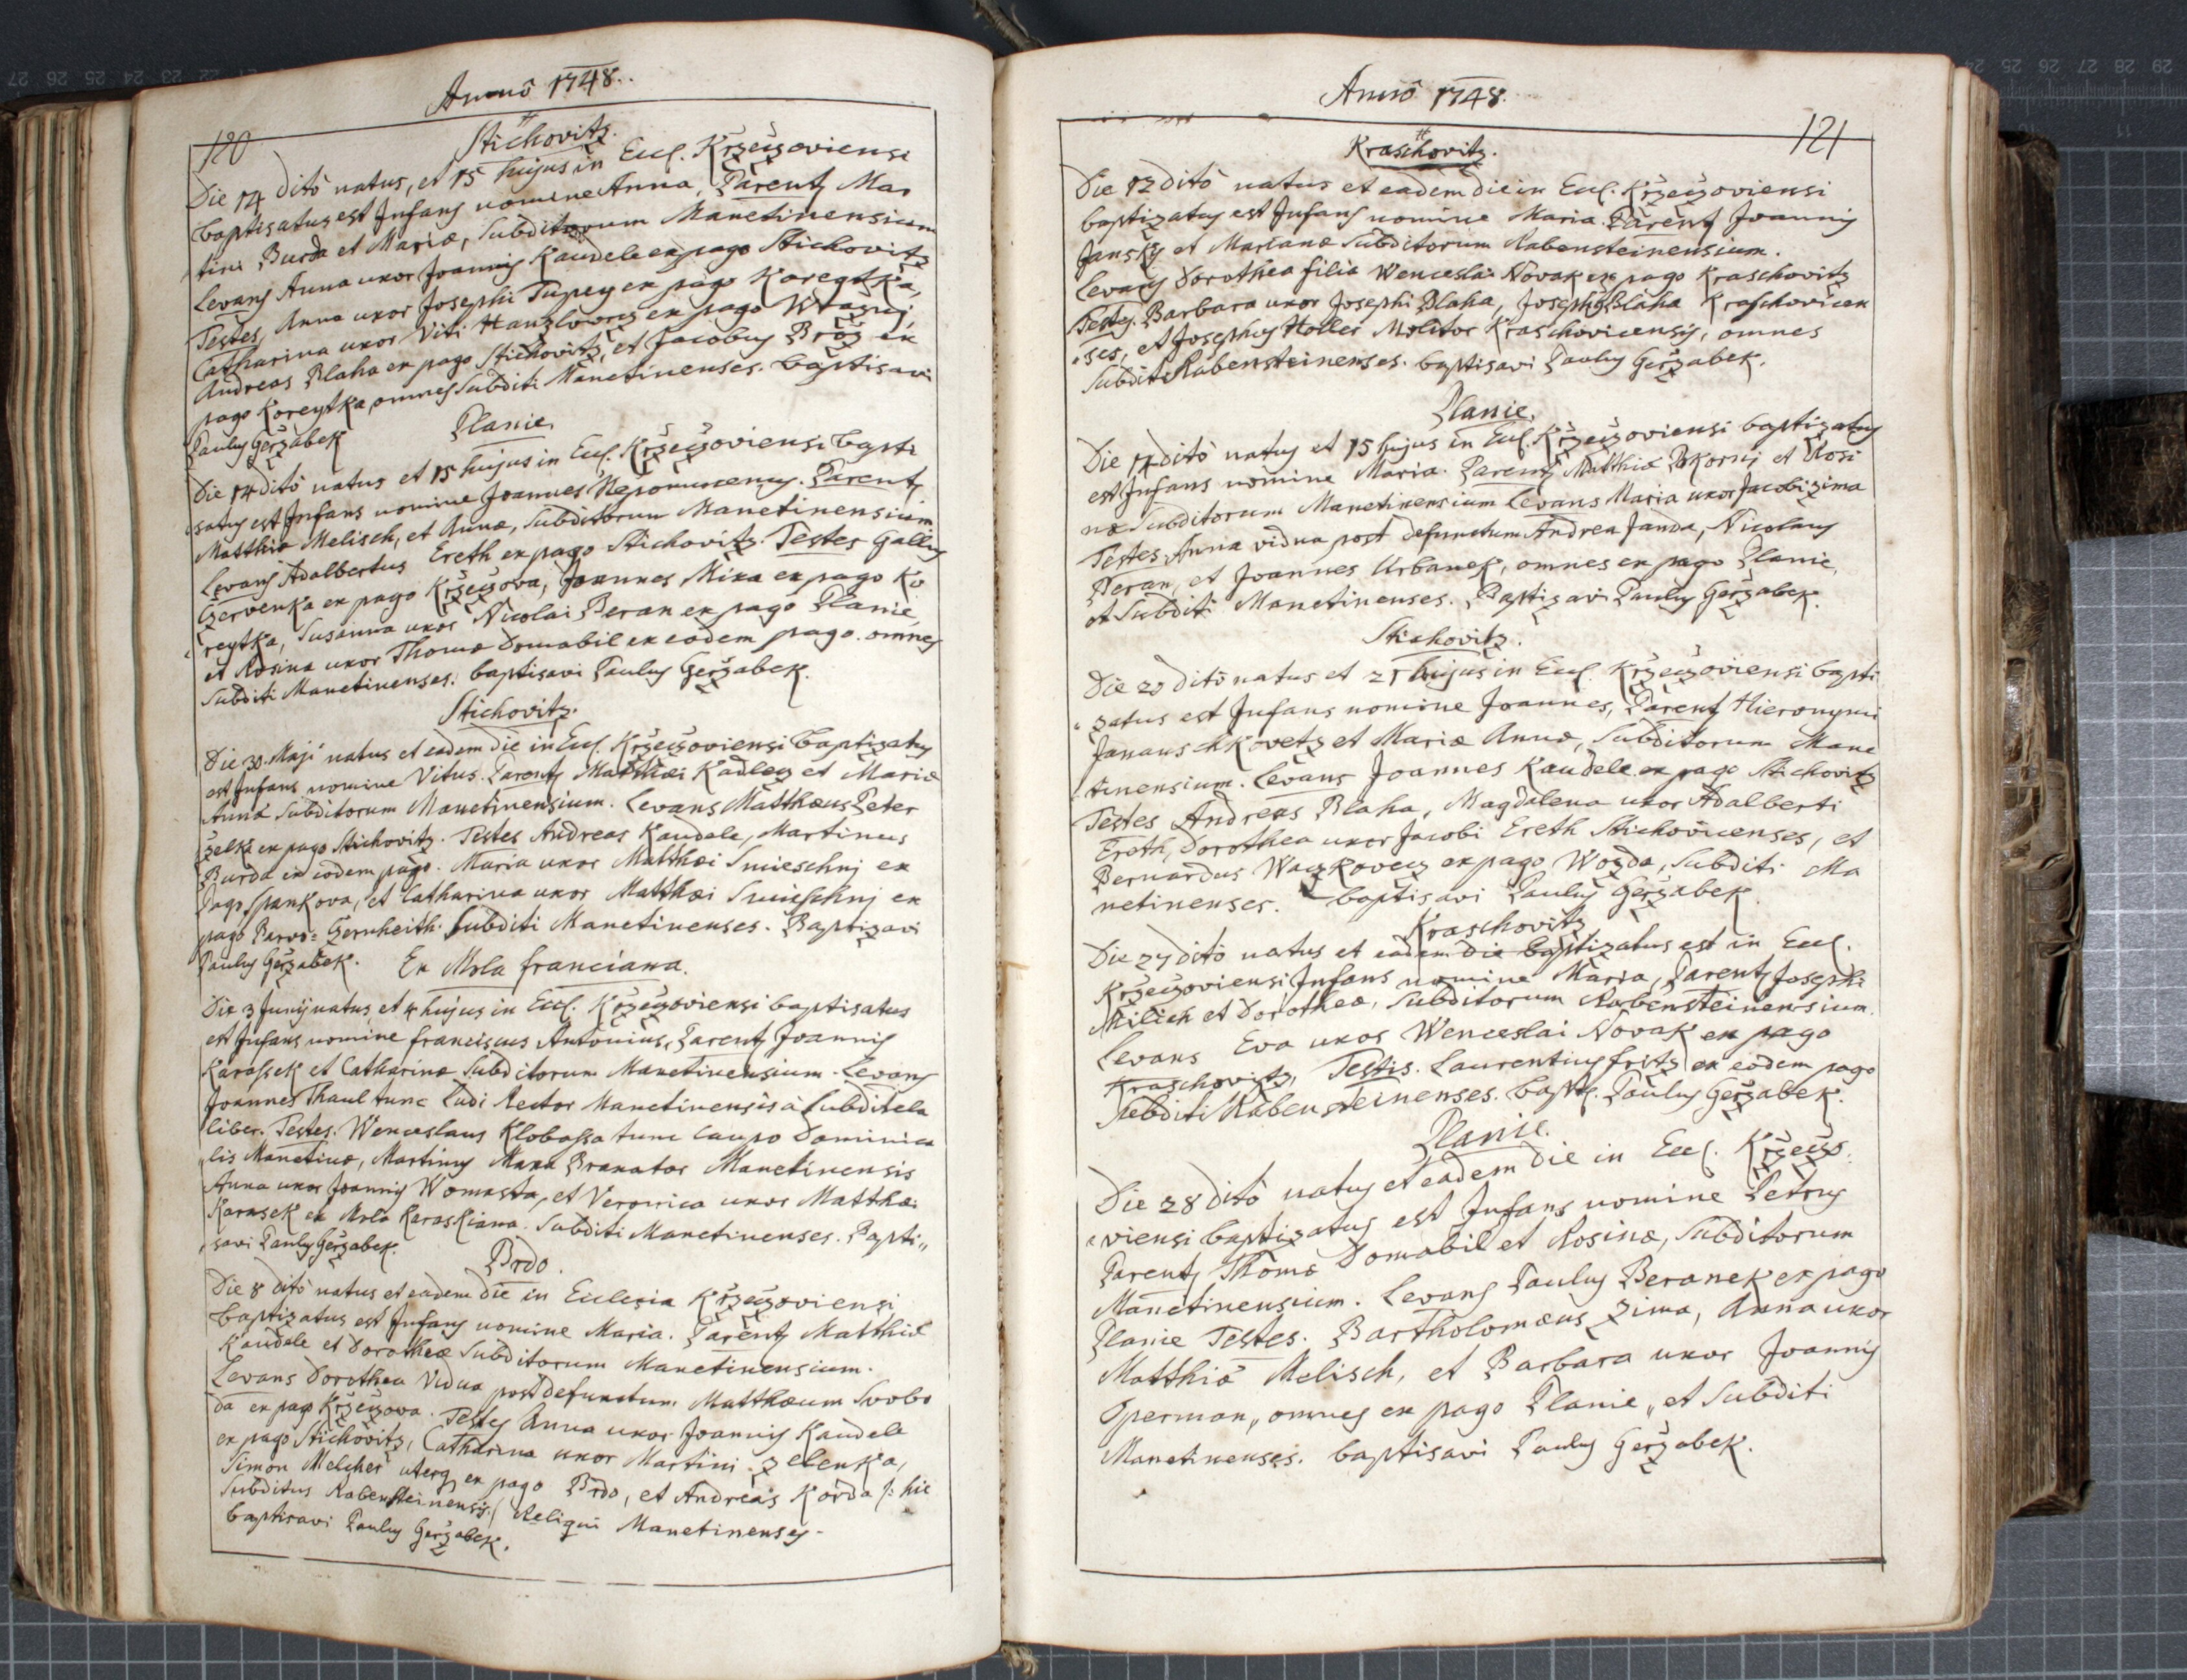 Annô 1748..
120
Stichovitz.
Die 14 ditô natus, et 15 hujus in Eccl. Kržeczoviensi
baptisatus est Infans nomine Anna, Parentz Mar
tini Burda et Mariæ, Subditorum Manetinensium
Levans Anna uxor Joannis Kaudele ex pago Stichovitz
Testes, Anna uxor Josephi Tupey ex pago Koreytka,
Catharina uxor Viti Hanzlovecz ex pago
Andreas Blaha ex pago Stichovitz, et Jacobus Brož ex
pago Koreytka, omnes Subditi Manetinenses. baptisavi
Paulus Geržabek
Planie.
Die 14 ditô natus et 15 hujus in Eccl. Kržeczoviensi bapti
satus est Infans nomine Joannes Nepomucenus. Parentz
Matthiæ Melisch, et Annæ, Subditorum Manetinensium
Levans Adalbertus Ereth ex pago Stichovitz. Testes Gallus
Czervenka ex pago Kržeczova, Joannes Mika ex pago Ko
reytka, Susanna uxor Nicolai Beran ex pago Planie,
et Rosina uxor Thomæ Domabil ex eodem pago. omnes
Subditi Manetinenses. baptisavi Paulus Geržabek.
Stichovitz.
Die 30. Maji natus et eadem die in Eccl. Kržeczoviensi baptizatus
est Infans nomine Vitus. Parentz Matthæi Kadlecz et Mariæ
Annæ Subditorum Manetinensium. Levans Matthæus Peter
zelka ex pago Stichovitz. Testes Andreas Kaudele, Martinus
Burda ex eodem pago. Maria uxor Matthæi Smieschnj ex
Pago Spankova, et Catharina uxor Matthæi Smieschnj ex
pago Parvo= Czernheith. Subditi Manetinenses. Baptizavi
Paulus Geržabek.
Ex Mola franciana.
Die 3 Junij natus, et 4 hujus in Eccl. Kržeczoviensi baptisatus
est Infans nomine franciscus Antonius, Parentz Joannis
Karassek et Catharinæ Subditorum Manetinensium. Levans
Joannes Thaul tunc Ludi Rector Manetinensis à Subditela
liber. Testes. Wenceslaus Klobassa tunc Caupo Dominica
lis Manetinæ, Martinus Maxa Braxator Manetinensis
Anna uxor Joannis Womasta, et Veronica uxor Matthæi
Karasek ex Mola Karaskiana. Subditi Manetinenses. Bapti„
savi Paulus Geržabek.
Brdo.
Die 8 ditô natus et eadem die in Ecclesia Kržeczoviensi
baptizatus est Infans nomine Maria. Parentz Matthiæ
Kaudele et Dorotheæ Subditorum Manetinensium.
Levans Dorothea Vidua post defunctum Matthæum Svobo
da ex pago Kržeczova. Testes Anna uxor Joannis Kaudele
ex pago Stichovitz, Catharina uxor Martini Zelenka,
Simon Melcher uterq ex pago Brdo, et Andreas Korda /: hic
Subditus Rabensteinensis:/ Reliqui Manetinenses.
baptisavi Paulus Geržabek.
Annô 1748.
121
Kraschovitz.
Die 12 ditô natus et eadem die in Eccl. Kržeczoviensi
baptizatus est Infans nomine Maria. Parentz Joannis
Jansky et Marianæ Subditorum Rabensteinensium.
Levans Dorothea filia Wenceslai Novak ex pago Kraschovitz
Testes. Barbara uxor Josephi Blaha, Josephus Blaha Kraschovicen
ses, et Josephus Holler Molitor Kraschovicensis, omnes
Subditi Rabensteinenses. baptisavi Paulus Geržabek.
Planie.
Die 14 ditô natus et 15 hujus in Eccl. Kržeczoviensi baptizatus
est Infans nomine Maria. Parentz Matthiæ Pokornj et Rosi
næ Subditorum Manetinensium Levans Maria uxor Jacobi Zima
Testes. Anna vidua post defunctum Andrea Janda, Nicolaus
Beran, et Joannes Urbanek, omnes ex pago Planie,
et Subditi Manetinenses. Baptizavi Paulus Geržabek.
Stichovitz.
Die 20 ditô natus et 21 hujus in Eccl. Kržeczoviensi bapti
zatus est Infans nomine Joannes, Parentz Hieronymi
Janauschkovetz et Mariæ Annæ, Subditorum Mane
tinensium. Levans Joannes Kaudele ex pago Stichovitz
Testes Andreas Blaha, Magdalena uxor Adalberti
Ereth, Dorothea uxor Jacobi Ereth Stichovicenses, et
Bernardus Waczkovecz ex pago Wozda, Subditi Ma
netinenses. baptisavi Paulus Geržabek
Kraschovitz
Die 27 ditô natus et eadem die baptizatus est in Eccl.
Kržeczoviensi Infans nomine Maria, Parentz Josephi
Milich et Dorotheæ, Subditorum Rabensteinensium.
Levans Eva uxor Wenceslai Novak ex pago
Kraschovitz, Testis. Laurentius fritz ex eodem pago
Subditi Rabensteinenses. bapt. Paulus Geržabek.
Planie.
Die 28 ditô natus et eadem die in Eccl. Kržeczo
viensi baptizatus est Infans nomine Petrus
Parentz Thomæ Domabil et Rosinæ, Subditorum
Manetinensium. Levans Paulus Beranek ex pago
Planie Testes. Bartholomæus Zima, Anna uxor
Matthiæ Melisch, et Barbara uxor Joannis
Operman„ omnes ex pago Planie„ et Subditi
Manetinenses. baptisavi Paulus Geržabek.